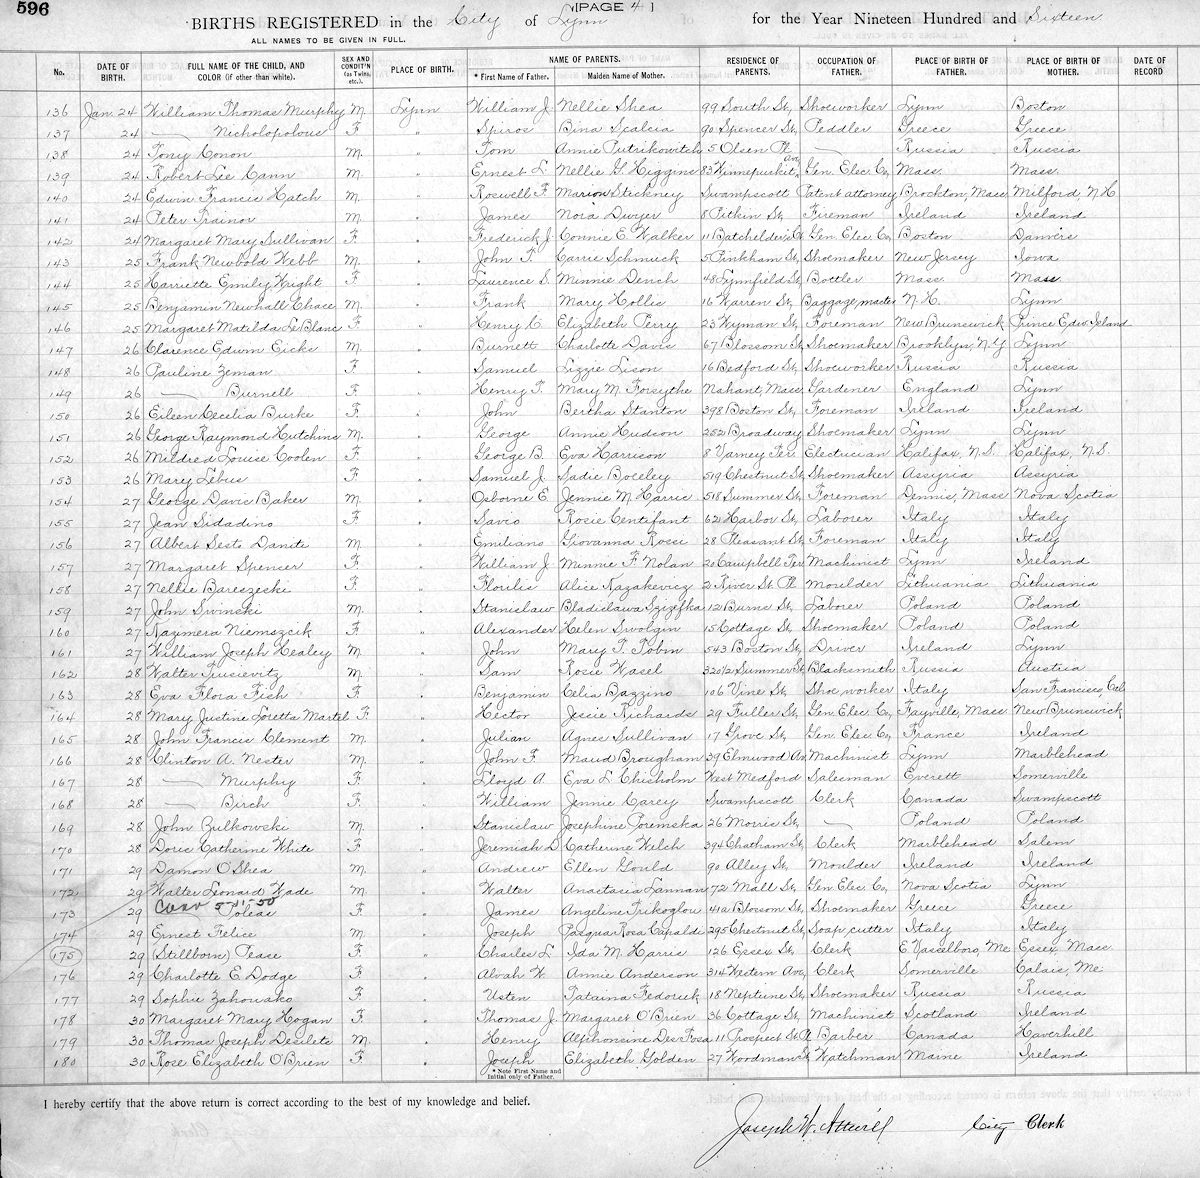 596
[PAGE 4]
BIRTHS REGISTERED in the City of Lynn for the Year Nineteen Hundred and Sixteen
ALL NAMES TO BE GIVEN IN FULL.
No. DATE OF BIRTH. FULL NAME OF THE CHILD, AND COLOR (if other than white). SEX AND CONDIT'N (as Twins, etc.). PLACE OF BIRTH. NAME OF PARENTS. * First Name of Father. Maiden Name of Mother. RESIDENCE OF PARENTS. OCCUPATION OF FATHER. PLACE OF BIRTH OF FATHER. PLACE OF BIRTH OF MOTHER. DATE OF RECORD
136 Jan 24 William Thomas Murphy M. Lynn William J. Nellie Shea 99 South St, Shoeworker Lynn Boston
137 24 — Nicholopolous F. " Spiros Bina Scalcia 90 Spencer St, Peddler Greece Greece
138 24 Tony Conon M. " Tom Annie Putrikowitch 5 Olsen Pl — Russia Russia
139 24 Robert Lee Cann M. " Ernest L. Nellie G. Higgins 83 Winnepurkit Ave, Gen. Elec. Co, Mass. Mass.
140 24 Edwin Francis Hatch M. " Roswell F. Marion Stickney Swampscott Patent attorney Brockton, Mass Milford, N.H.
141 24 Peter Trainor M. " James Nora Dwyer 8 Pitkin St, Fireman Ireland Ireland
142 24 Margaret Mary Sullivan F. " Frederick J. Connie E. Walker 11 Batchelders Ct Gen. Elec. Co, Boston Danvers
143 25 Frank Newbold Webb M. " John T. Carrie Schmuck 5 Pinkham St, Shoemaker New Jersey Iowa
144 25 Harriette Emily Wright F. " Laurence S. Minnie Dench 48 Lynnfield St, Bottler Mass. Mass
145 25 Benjamin Newhall Chace M. " Frank Mary Hollis 16 Warren St, Baggage master N.H. Lynn
146 25 Margaret Matilda Le Blanc F. " Henry C. Elizabeth Perry 23 Wyman St, Foreman New Brunswick Prince Edw Island
147 26 Clarence Edwin Eicks M. " Burnett Charlotte Davis 67 Blossom St, Shoemaker Brooklyn, N.Y. Lynn
148 26 Pauline Zeman F. " Samuel Lizzie Lison 16 Bedford St, Shoeworker Russia Russia
149 26 — Burnell F. " Henry T. Mary M. Forsythe Nahant, Mass. Gardener England Lynn
150 26 Eileen Cecelia Burke F. " John Bertha Stanton 398 Boston St, Foreman Ireland Ireland
151 26 George Raymond Hutchins M. " George Annie Hudson 252 Broadway Shoemaker Lynn Lynn
152 26 Mildred Louise Coolen F. " George B. Eva Harrison 8 Varney Ter Electrician Halifax, N.S. Halifax, N.S.
153 26 Mary Libus F. " Samuel J. Sadie Boceley 519 Chestnut St, Shoemaker Assyria Assyria
154 27 George Davis Baker M. " Osborne E. Jennie M. Harris 518 Summer St, Foreman Dennis, Mass Nova Scotia
155 27 Jean Sidadino F. " Savio Rosie Centifant 62 Harbor St, Laborer Italy Italy
156 27 Albert Sesto Daniti M. " Emiliano Giovanna Rossi 28 Pleasant St, Foreman Italy Italy
157 27 Margaret Spencer F. " William J. Minnie F. Nolan 20 Campbell Ter Machinist Lynn Ireland
158 27 Nellie Bareszeski F. " Florilis Alice Nazakevicz 2 River St. Pl Moulder Lithuania Lithuania
159 27 John Sivinski M. " Stanislaw Bladislawa 12 Burns St, Laborer Poland Poland
160 27 Nazimera Niemszcik F. " Alexander Helen Swolgin 15 Cottage St, Shoemaker Poland Poland
161 27 William Joseph Healey M. " John Mary T. Tobin 543 Boston St, Driver Ireland Lynn
162 28 Walter Tusievitz M. " Sam Rosie Wasel 320½ Summer St, Blacksmith Russia Austria
163 28 Eva Flora Fish F. " Benjamin Celia Bazzino 106 Vine St, Shoe worker Italy San Francisco, Cal
164 28 Mary Justine Loretta Martel F. " Hector Jessie Richards 29 Fuller St, Gen. Elec. Co, Fayville, Mass New Brunswick
165 28 John Francis Clement M. " Julian Agnes Sullivan 17 Grove St, Gen. Elec. Co, France Ireland
166 28 Clinton A. Nester M. " John F. Maud Brougham 39 Elmwood Av, Machinist Lynn Marblehead
167 28 — Murphy F. " Lloyd A. Eva L. Chisholm West Medford Salesman Everett Somerville
168 28 — Birch F. " William Jennie Carey Swampscott Clerk Canada Swampscott
169 28 John Zulkowski M. " Stanislaw Josephine Poremska 26 Morris St, — Poland Poland
170 28 Doris Catherine White F. " Jeremiah D. Catherine Welch 394 Chatham St, Clerk Marblehead Salem
171 29 Damon O'Shea M. " Andrew Ellen Gould 90 Alley St, Moulder Ireland Ireland
172 29 Walter Leonard Wade M. " Walter Anastasia Lannan 72 Mall St, Gen. Elec. Co, Nova Scotia Lynn
173 29 Corr 5-11-50 Toleas F. " James Angeline Trikoglou 41a Blossom St, Shoemaker Greece Greece
174 29 Ernest Felice M. " Joseph Pasqua Rosa Capaldi 295 Chestnut St, Soap cutter Italy Italy
175 29 (Stillborn) Tease F. " Charles L. Ida M. Harris 126 Essex St, Clerk E. Vassalboro, Me Essex, Mass.
176 29 Charlotte E. Dodge F. " Alvah W. Annie Anderson 314 Western Ave, Clerk Somerville Calais, Me.
177 29 Sophie Zahowako F. " Usten Tataina Fedoruk 18 Neptune St, Shoemaker Russia Russia
178 30 Margaret Mary Hogan F. " Thomas J. Margaret O'Brien 36 Cottage St, Machinist Scotland Ireland
179 30 Thomas Joseph Desilets M. " Henry Alphonsine Des Fosa 11 Prospect St. Pl Barber Canada Haverhill
180 30 Rose Elizabeth O'Brien F. " Joseph Elizabeth Golden 27 Woodman St, Watchman Maine Ireland
* Note First Name and Initial only of Father.
I hereby certify that the above return is correct according to the best of my knowledge and belief.
Joseph W. Attwill City Clerk